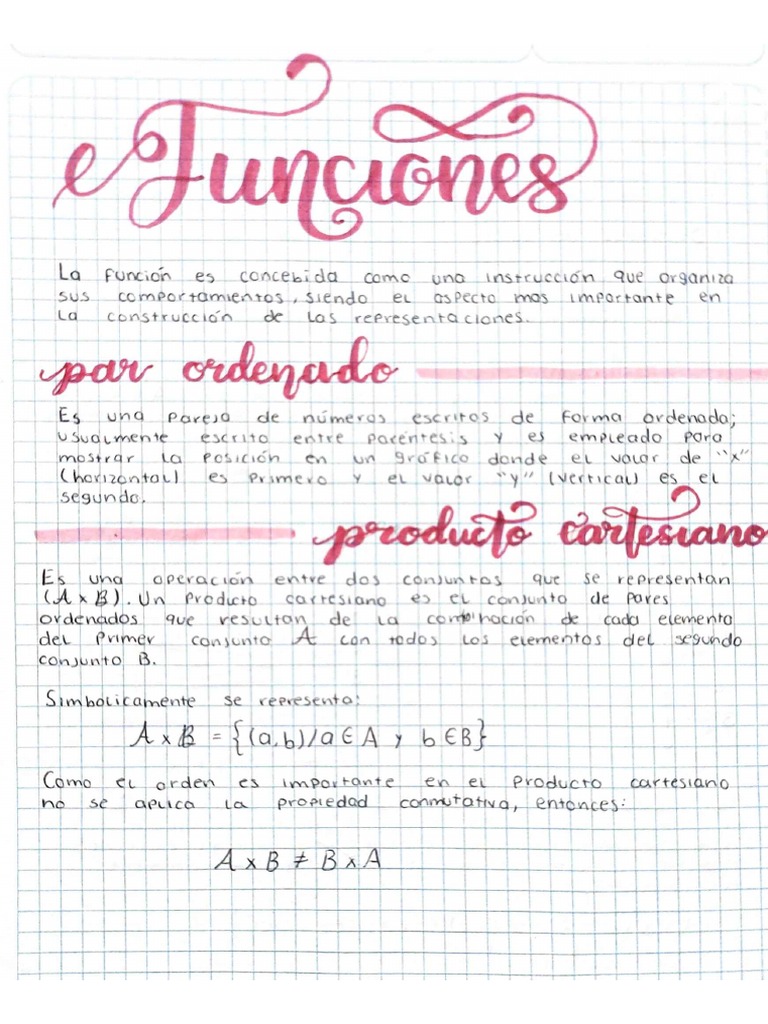 Funciones
La función es concebida como una instrucción que organiza
sus comportamientos, siendo el aspecto mas importante en
la construcción de las representaciones.
par ordenado
Es una pareja de números escritos de forma ordenada;
usualmente escrito entre paréntesis y es empleado para
mostrar la posición en un gráfico donde el valor de "x"
(horizontal) es primero y el valor "y" (vertical) es el
segundo.
producto cartesiano
Es una operación entre dos conjuntos que se representan
(A x B). Un producto cartesiano es el conjunto de pares
ordenados que resultan de la combinación de cada elemento
del primer conjunto A con todos los elementos del segundo
conjunto B.
Simbolicamente se representa:
A x B = {(a,b)/a ∈ A y b ∈ B}
Como el orden es importante en el producto cartesiano
no se aplica la propiedad conmutativa, entonces:
A x B ≠ B x A